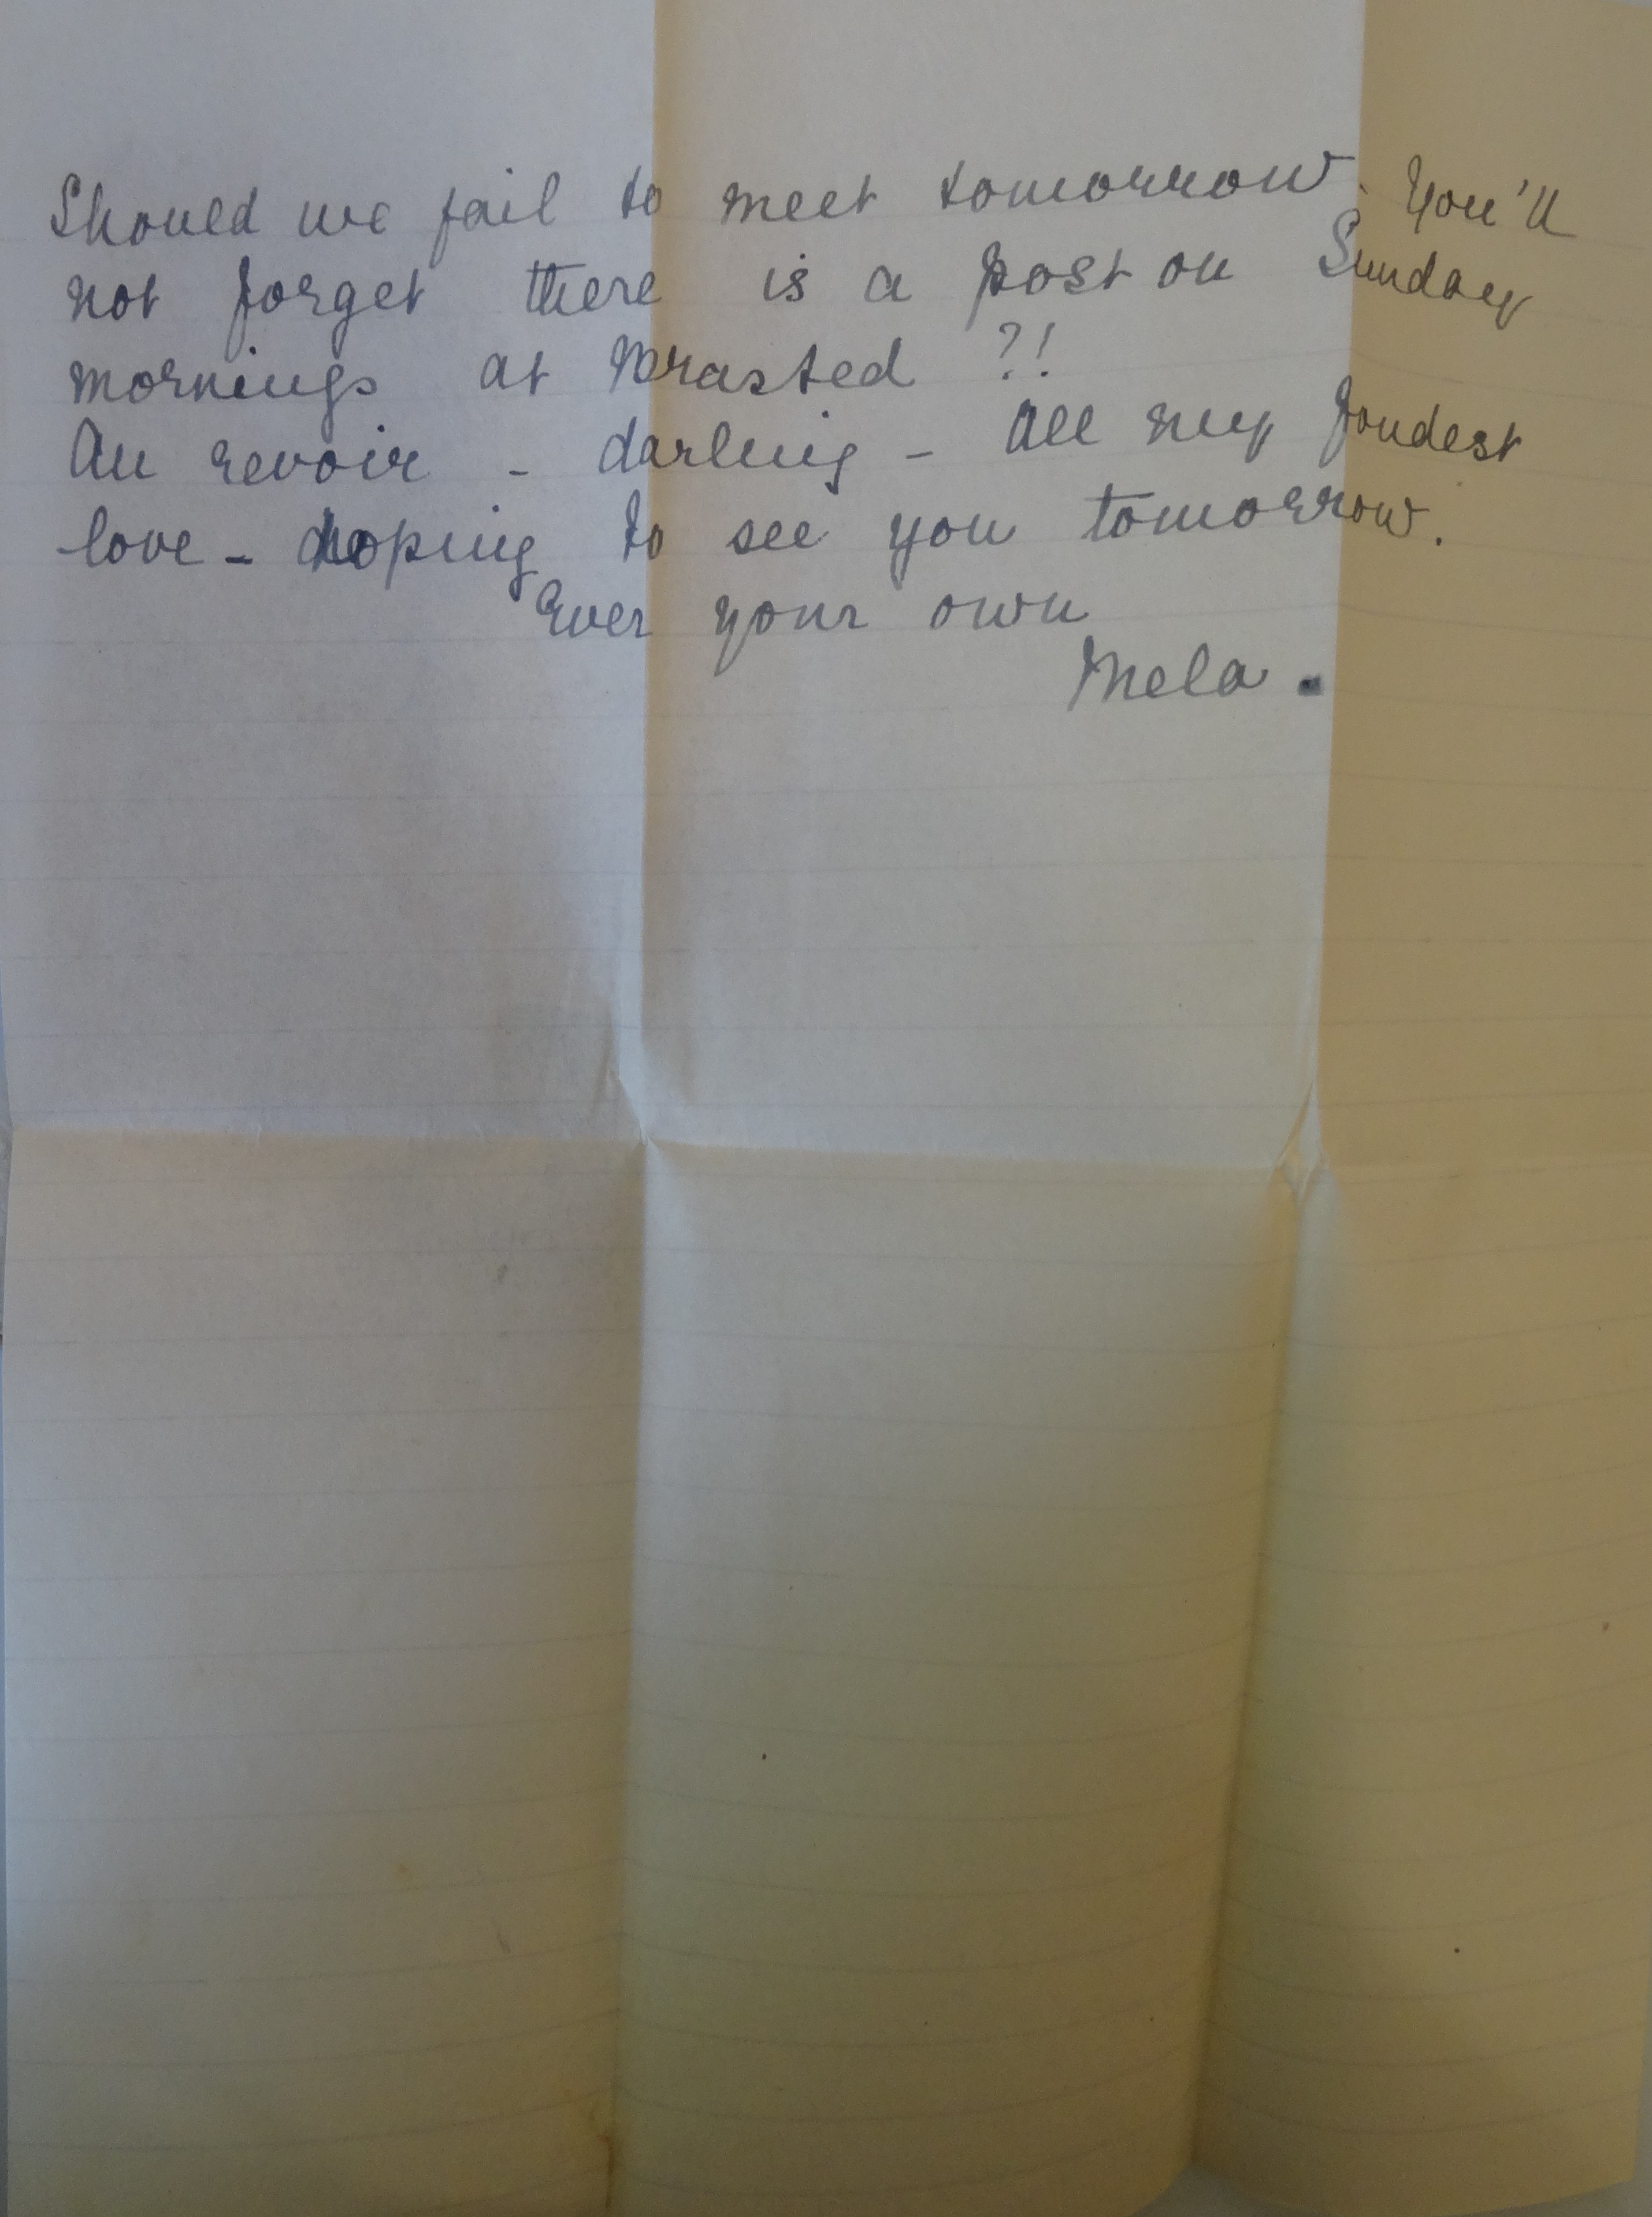 Should we fail to meet tomorrow. You'll
not forget there is a post on Sunday
mornings at Brasted ?!
Au revoir - darling - All my fondest
love - hoping to see you tomorrow.
Ever your own
Mela.